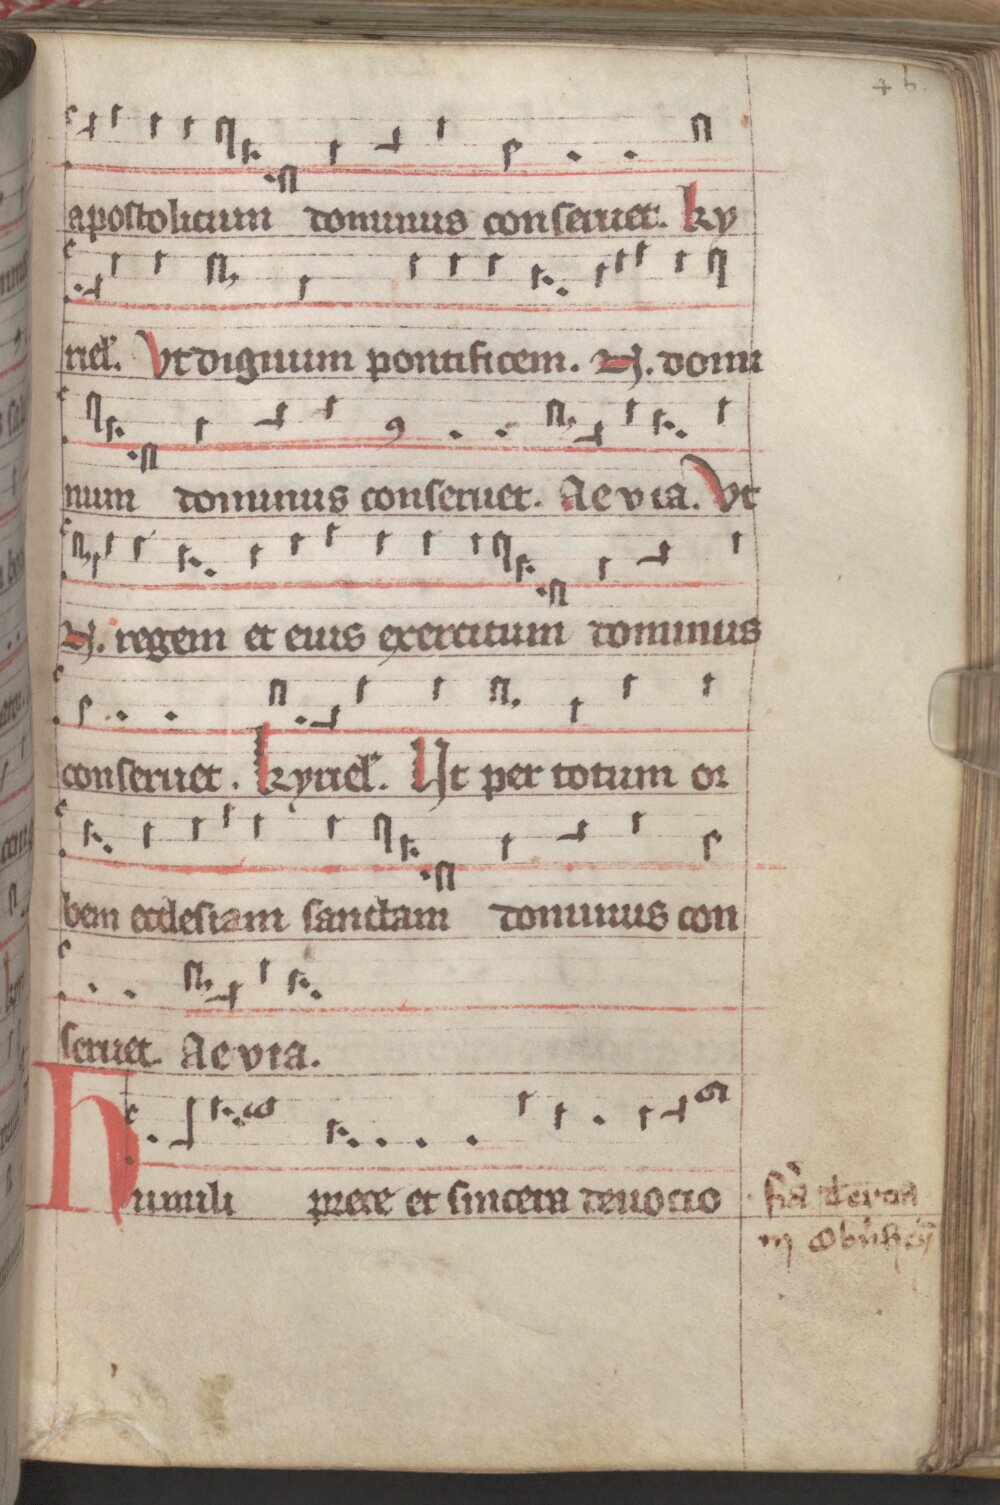 46.
apostolicum dominus conseruet. ky
riel'. Vt dignum pontificem. N. domi
num dominus conseruet. Aevia. Vt
N. regem et eius exercitum dominus
conseruet. kyriel'. Ut per totum or
bem ecclesiam sanctam dominus con
seruet. Aevia.
Humili prece et sincera deuotio